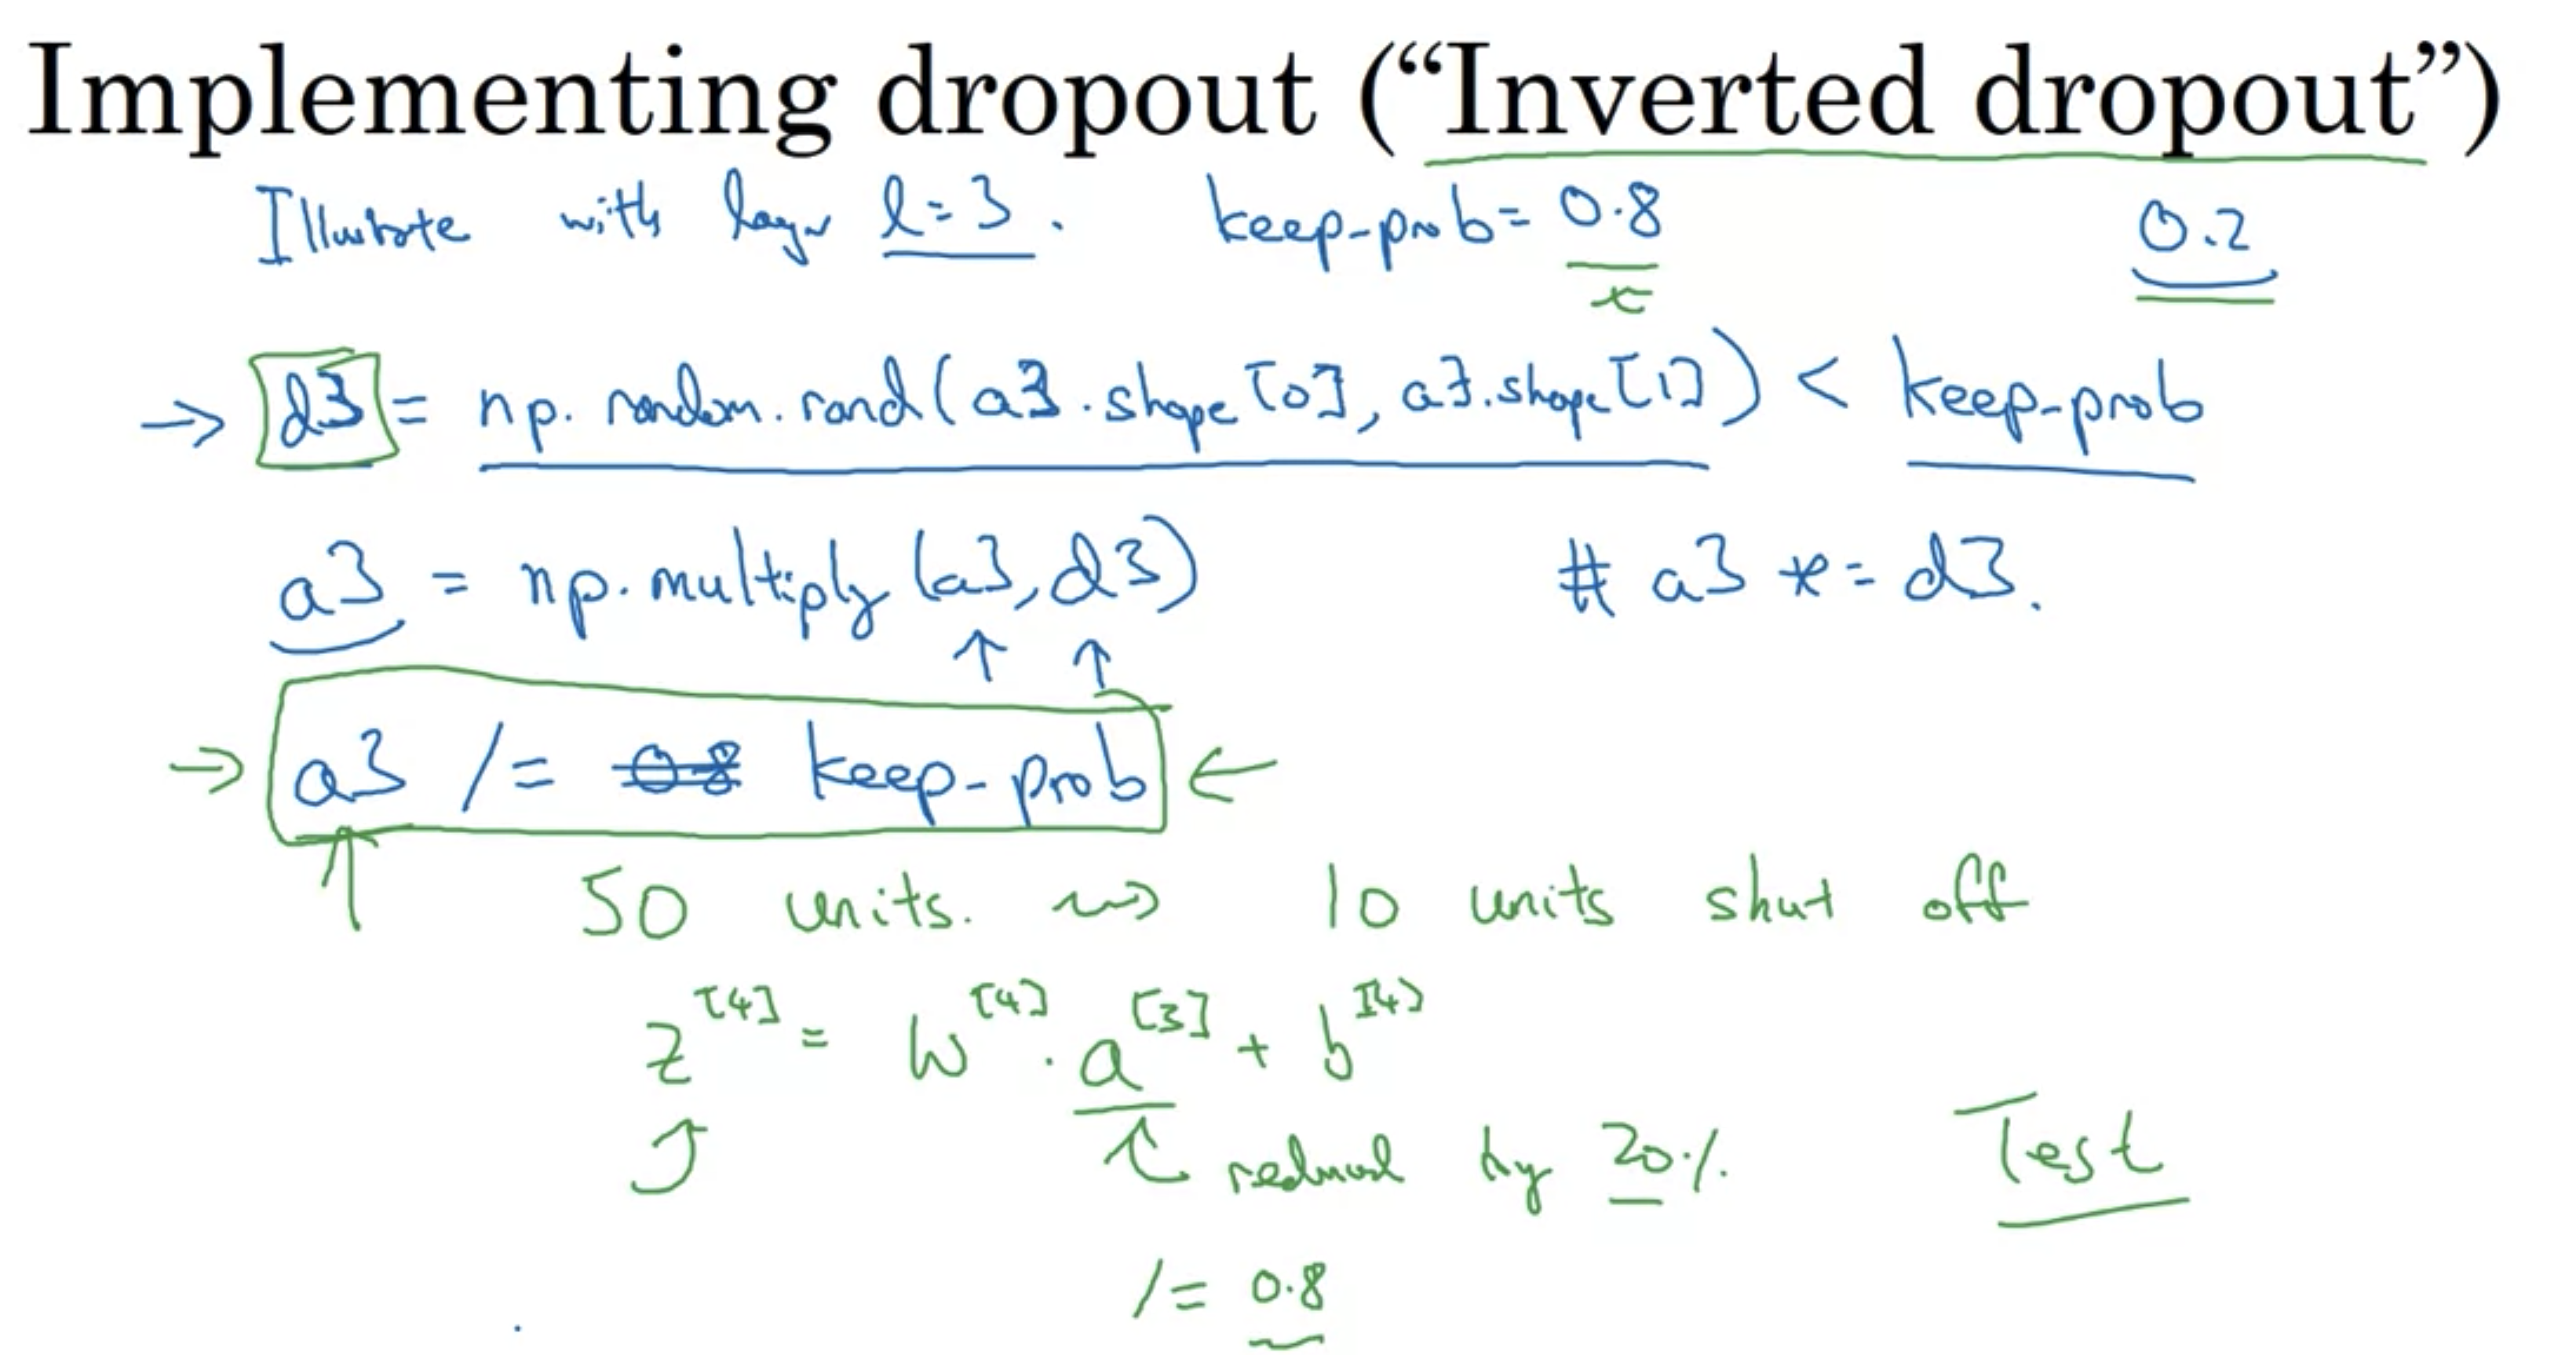 Implementing dropout (“Inverted dropout”)
Illustrate with layer l=3. keep-prob=0.8 0.2
→ d3 = np.random.rand(a3.shape[0], a3.shape[1]) < keep-prob
a3 = np.multiply(a3,d3) # a3 *= d3.
↑ ↑
→ a3 /= 0.8 keep-prob ←
50 units. ⇝ 10 units shut off
z^[4] = W^[4] · a^[3] + b^[4]
reduced by 20% Test
/= 0.8